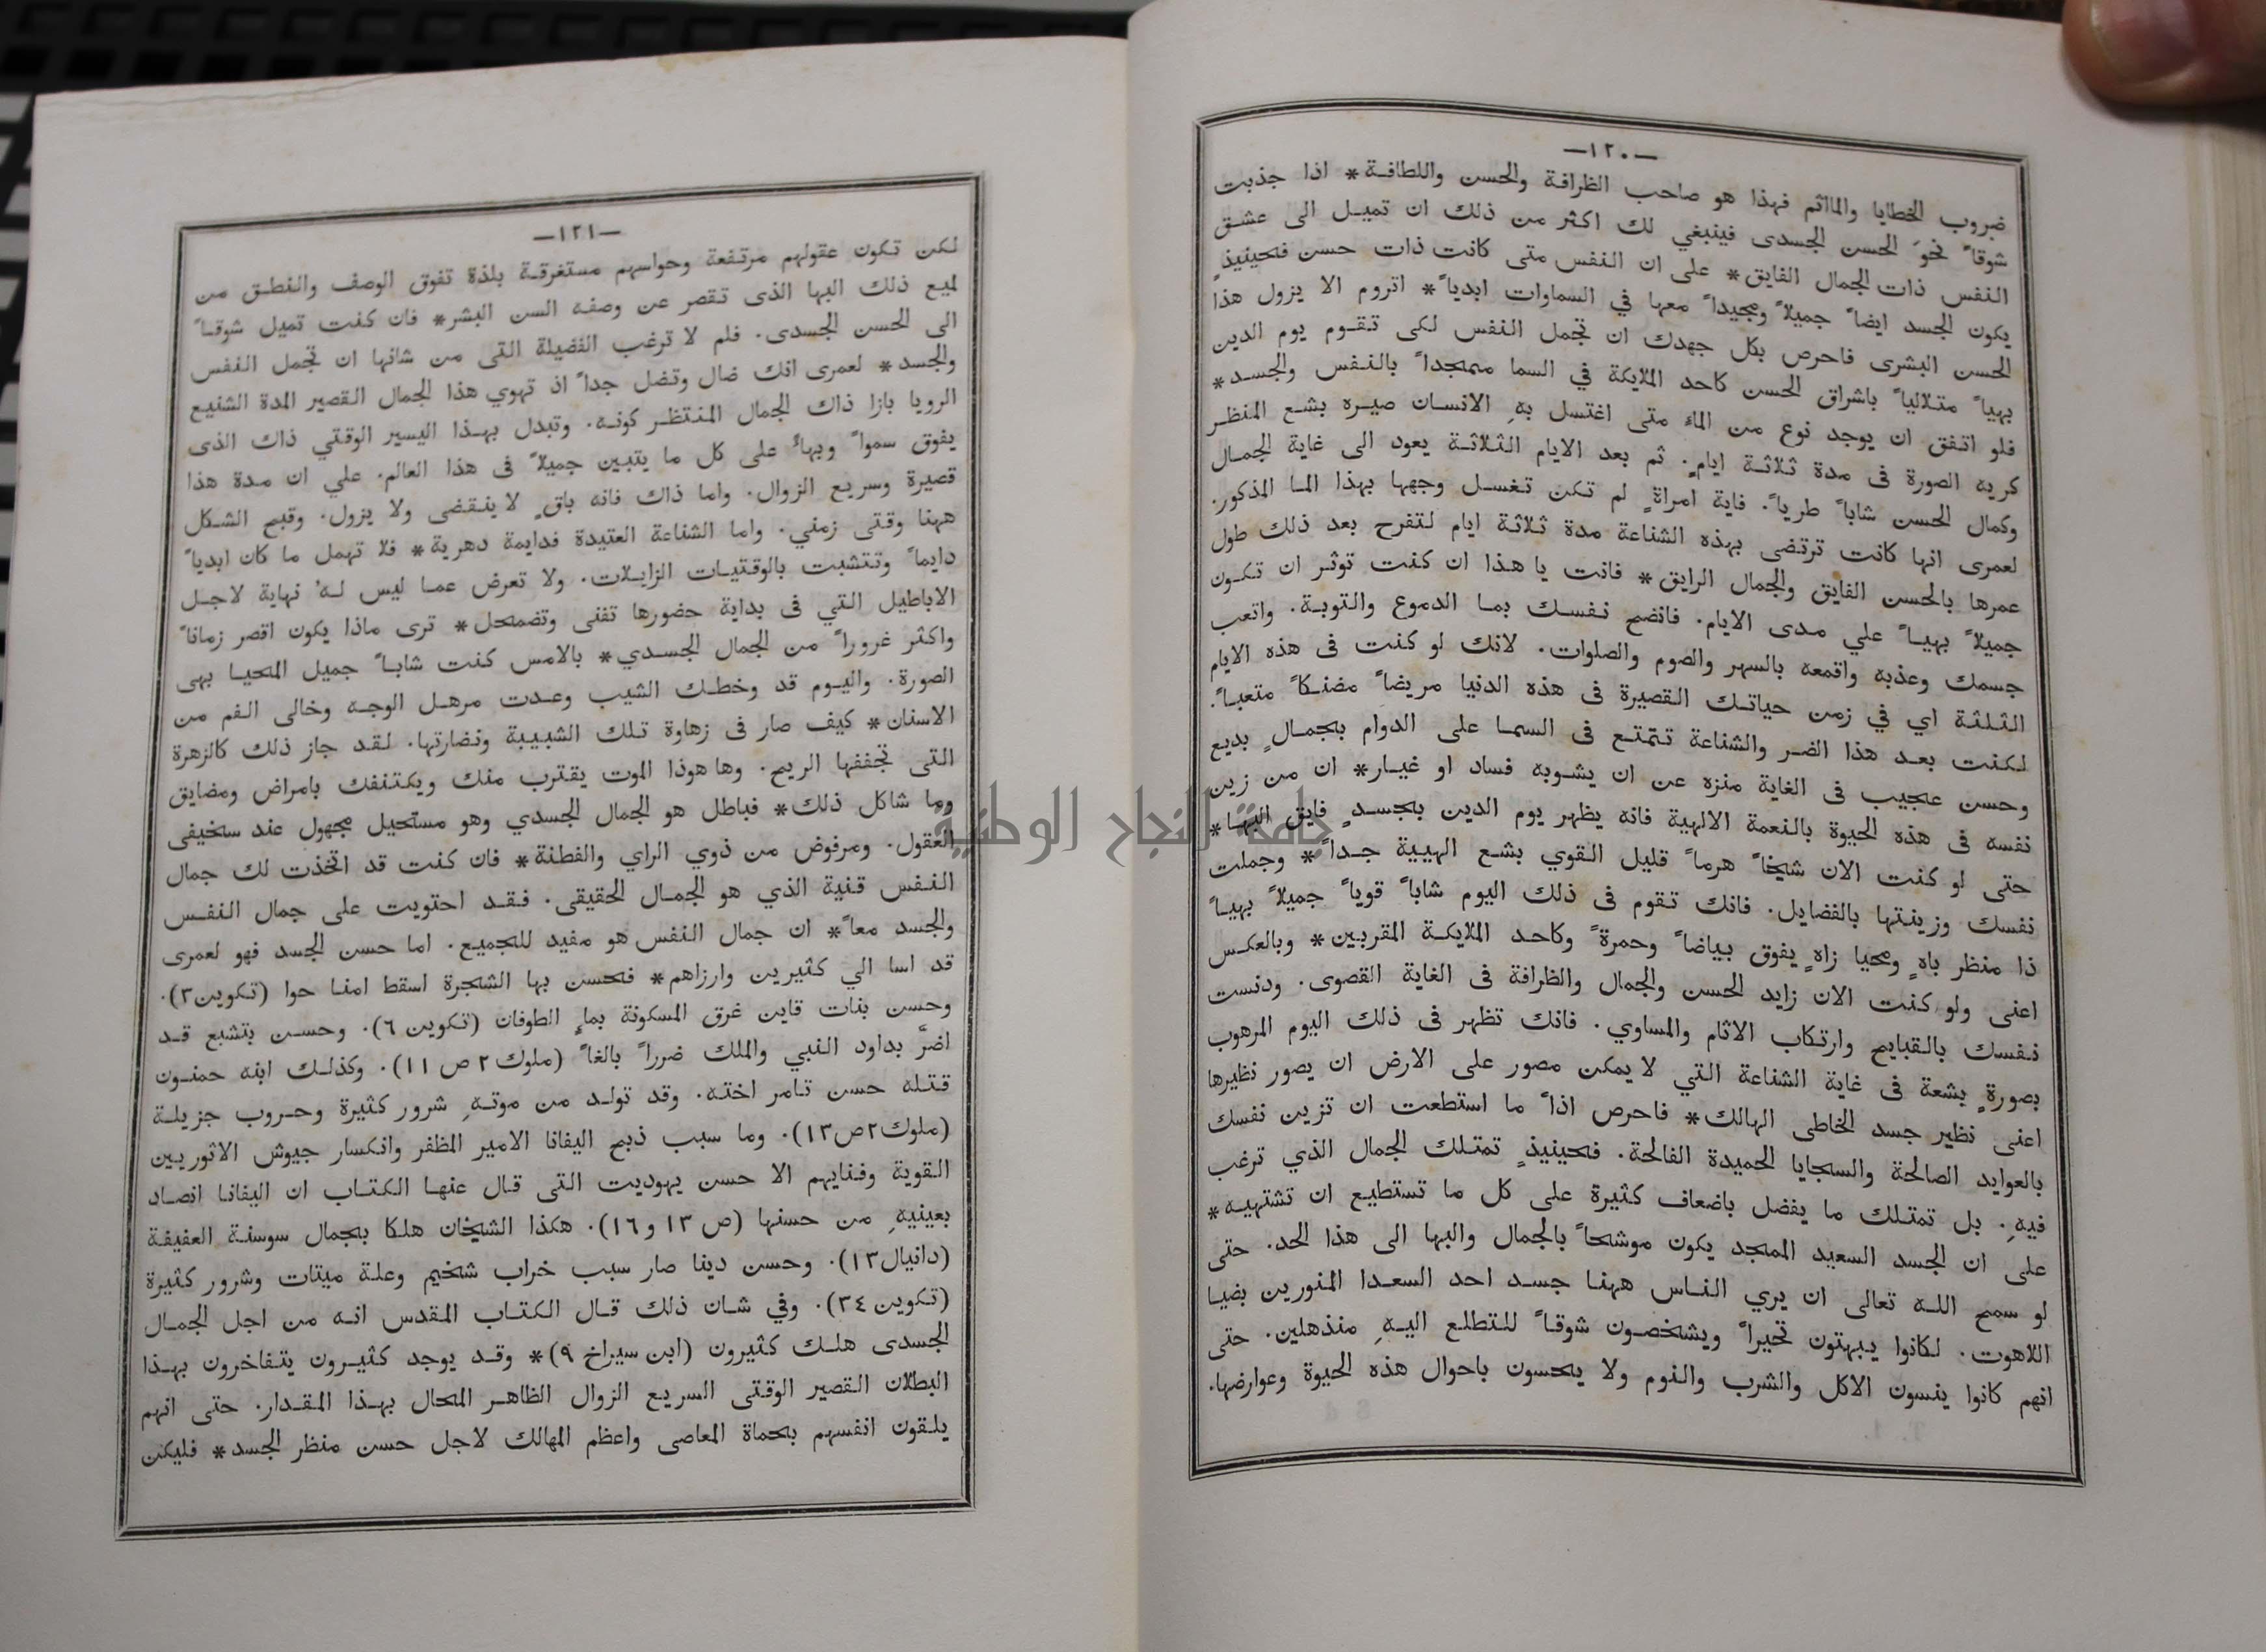 —١٢٠—
ضروب الخطايا والمااثم فهذا هو صاحب الظرافة والحسن واللطافة* اذا جذبت
شوقاً نحوَ الحسن الجسدى فينبغي لك اكثر من ذلك ان تميل الى عشق
النفس ذات الجمال الفايق* على ان النفس متى كانت ذات حسن فحينيذٍ
يكون الجسد ايضاً جميلاً ومجيداً معها في السماوات ابدياً* اتروم الا يزول هذا
الحسن البشرى فاحرص بكل جهدك ان تجمل النفس لكى تقوم يوم الدين
بهياً متلالياً باشراق الحسن كاحد الملايكة في السما ممجداً بالنفس والجسد*
فلو اتفق ان يوجد نوع من الماء متى اغتسل بهِ الانسان صيره بشع المنظر
كريه الصورة فى مدة ثلاثة ايامٍ. ثم بعد الايام الثلاثة يعود الى غاية الجمال
وكمال الحسن شاباً طرياً. فاية امراةٍ لم تكن تغسل وجهها بهذا الما المذكور.
لعمرى انها كانت ترتضى بهذه الشناعة مدة ثلاثة ايام لتفرح بعد ذلك طول
عمرها بالحسن الفايق والجمال الرايق* فانت يا هذا ان كنت توثر ان تكون
جميلاً بهياً علي مدى الايام. فانضح نفسك بما الدموع والتوبة. واتعب
جسمك وعذبه واقمعه بالسهر والصوم والصلوات. لانك لو كنت فى هذه الايام
الثلثة اي في زمن حياتك القصيرة فى هذه الدنيا مريضاً مضنكاً متعباً.
لكنت بعد هذا الضر والشناعة تتمتع فى السما على الدوام بجمالٍ بديع
وحسن عجيب فى الغاية منزه عن ان يشوبه فساد او غيار* ان من زين
نفسه فى هذه الحيوة بالنعمة الالهية فانه يظهر يوم الدين بجسدٍ فايق البها*
حتى لو كنت الان شيخاً هرماً قليل القوي بشع الهيية جداً* وجملت
نفسك وزينتها بالفضايل. فانك تقوم فى ذلك اليوم شاباً قوياً جميلاً بهياً
ذا منظر باهٍ ومحيا زاهٍ يفوق بياضاً وحمرةً وكاحد الملايكة المقربين* وبالعكس
اعنى ولو كنت الان زايد الحسن والجمال والظرافة فى الغاية القصوى. ودنست
نفسك بالقبايح وارتكاب الاثام والمساوي. فانك تظهر فى ذلك اليوم المرهوب
بصورةٍ بشعة فى غاية الشناعة التي لا يمكن مصور على الارض ان يصور نظيرها
اعنى نظير جسد الخاطى الهالك* فاحرص اذاً ما استطعت ان تزين نفسك
بالعوايد الصالحة والسجايا الحميدة الفالحة. فحينيذٍ تمتلك الجمال الذي ترغب
فيهِ. بل تمتلك ما يفضل باضعاف كثيرة على كل ما تستطيع ان تشتهيه*
على ان الجسد السعيد الممجد يكون موشحاً بالجمال والبها الى هذا الحد. حتى
لو سمح الله تعالى ان يري الناس ههنا جسد احد السعدا المنورين بضيا
اللاهوت. لكانوا يبهتون تحيراً ويشخصون شوقاً للتطلع اليهِ منذهلين. حتى
انهم كانوا ينسون الاكل والشرب والنوم ولا يحسون باحوال هذه الحيوة وعوارضها.
—١٢١—
لكن تكون عقولهم مرتفعة وحواسهم مستغرقة بلذة تفوق الوصف والنطق من
لميع ذلك البها الذى تقصر عن وصفه السن البشر* فان كنت تميل شوقاً
الى الحسن الجسدى. فلم لا ترغب الفضيلة التى من شانها ان تجمل النفس
والجسد* لعمرى انك ضال وتضل جداً اذ تهوي هذا الجمال القصير المدة الشنيع
الرويا بازا ذاك الجمال المنتظر كونه. وتبدل بهذا اليسير الوقتي ذاك الذى
يفوق سمواً وبهاءً على كل ما يتبين جميلاً فى هذا العالم. علي ان مدة هذا
قصيرة وسريع الزوال. واما ذاك فانه باقٍ لا ينقضى ولا يزول. وقبح الشكل
ههنا وقتى زمني. واما الشناعة العتيدة فدايمة دهرية* فلا تهمل ما كان ابدياً
دايماً وتتشبت بالوقتيات الزايلات. ولا تعرض عما ليس لهُ نهاية لاجل
الاباطيل التي فى بداية حضورها تفنى وتضمحل* ترى ماذا يكون اقصر زماناً
واكثر غروراً من الجمال الجسدي* بالامس كنت شاباً جميل المحيا بهى
الصورة. واليوم قد وخطك الشيب وعدت مرهل الوجه وخالى الفم من
الاسنان* كيف صار فى زهاوة تلك الشبيبة ونضارتها. لقد جاز ذلك كالزهرة
التى تجففها الريح. وها هوذا الموت يقترب منك ويكتنفك بامراض ومضايق
وما شاكل ذلك* فباطل هو الجمال الجسدي وهو مستحيل مجهول عند سخيفى
العقول. ومرفوض من ذوي الراي والفطنة* فان كنت قد اتخذت لك جمال
النفس قنية الذي هو الجمال الحقيقى. فقد احتويت على جمال النفس
والجسد معاً* ان جمال النفس هو مفيد للجميع. اما حسن الجسد فهو لعمرى
قد اسا الي كثيرين وارزاهم* فحسن بها الشجرة اسقط امنا حوا (تكوين٣).
وحسن بنات قاين غرق المسكونة بماءِ الطوفان (تكوين ٦). وحسن بتشبع قد
اضرَّ بداود النبي والملك ضرراً بالغاً (ملوك ٢ ص ١١). وكذلك ابنه حمنون
قتله حسن تامر اخته. وقد تولد من موتهِ شرور كثيرة وحروب جزيلة
(ملوك٢ص١٣). وما سبب ذبح اليفانا الامير المظفر وانكسار جيوش الاثوريين
القوية وفنايهم الا حسن يهوديت التى قال عنها الكتاب ان اليفانا انصاد
بعينيهِ من حسنها (ص ١٣ و١٦). هكذا الشيخان هلكا بجمال سوسنة العفيفة
(دانيال١٣). وحسن دينا صار سبب خراب شخيم وعلة ميتات وشرور كثيرة
(تكوين ٣٤). وفي شان ذلك قال الكتاب المقدس انه من اجل الجمال
الجسدى هلك كثيرون (ابن سيزاخ ٩)* وقد يوجد كثيرون يتفاخرون بهذا
البطلان القصير الوقتى السريع الزوال الظاهر المحال بهذا المقدار. حتى انهم
يلقون انفسهم بحماة المعاصى واعظم المهالك لاجل حسن منظر الجسد* فليكن
جامعة النجاح الوطنية